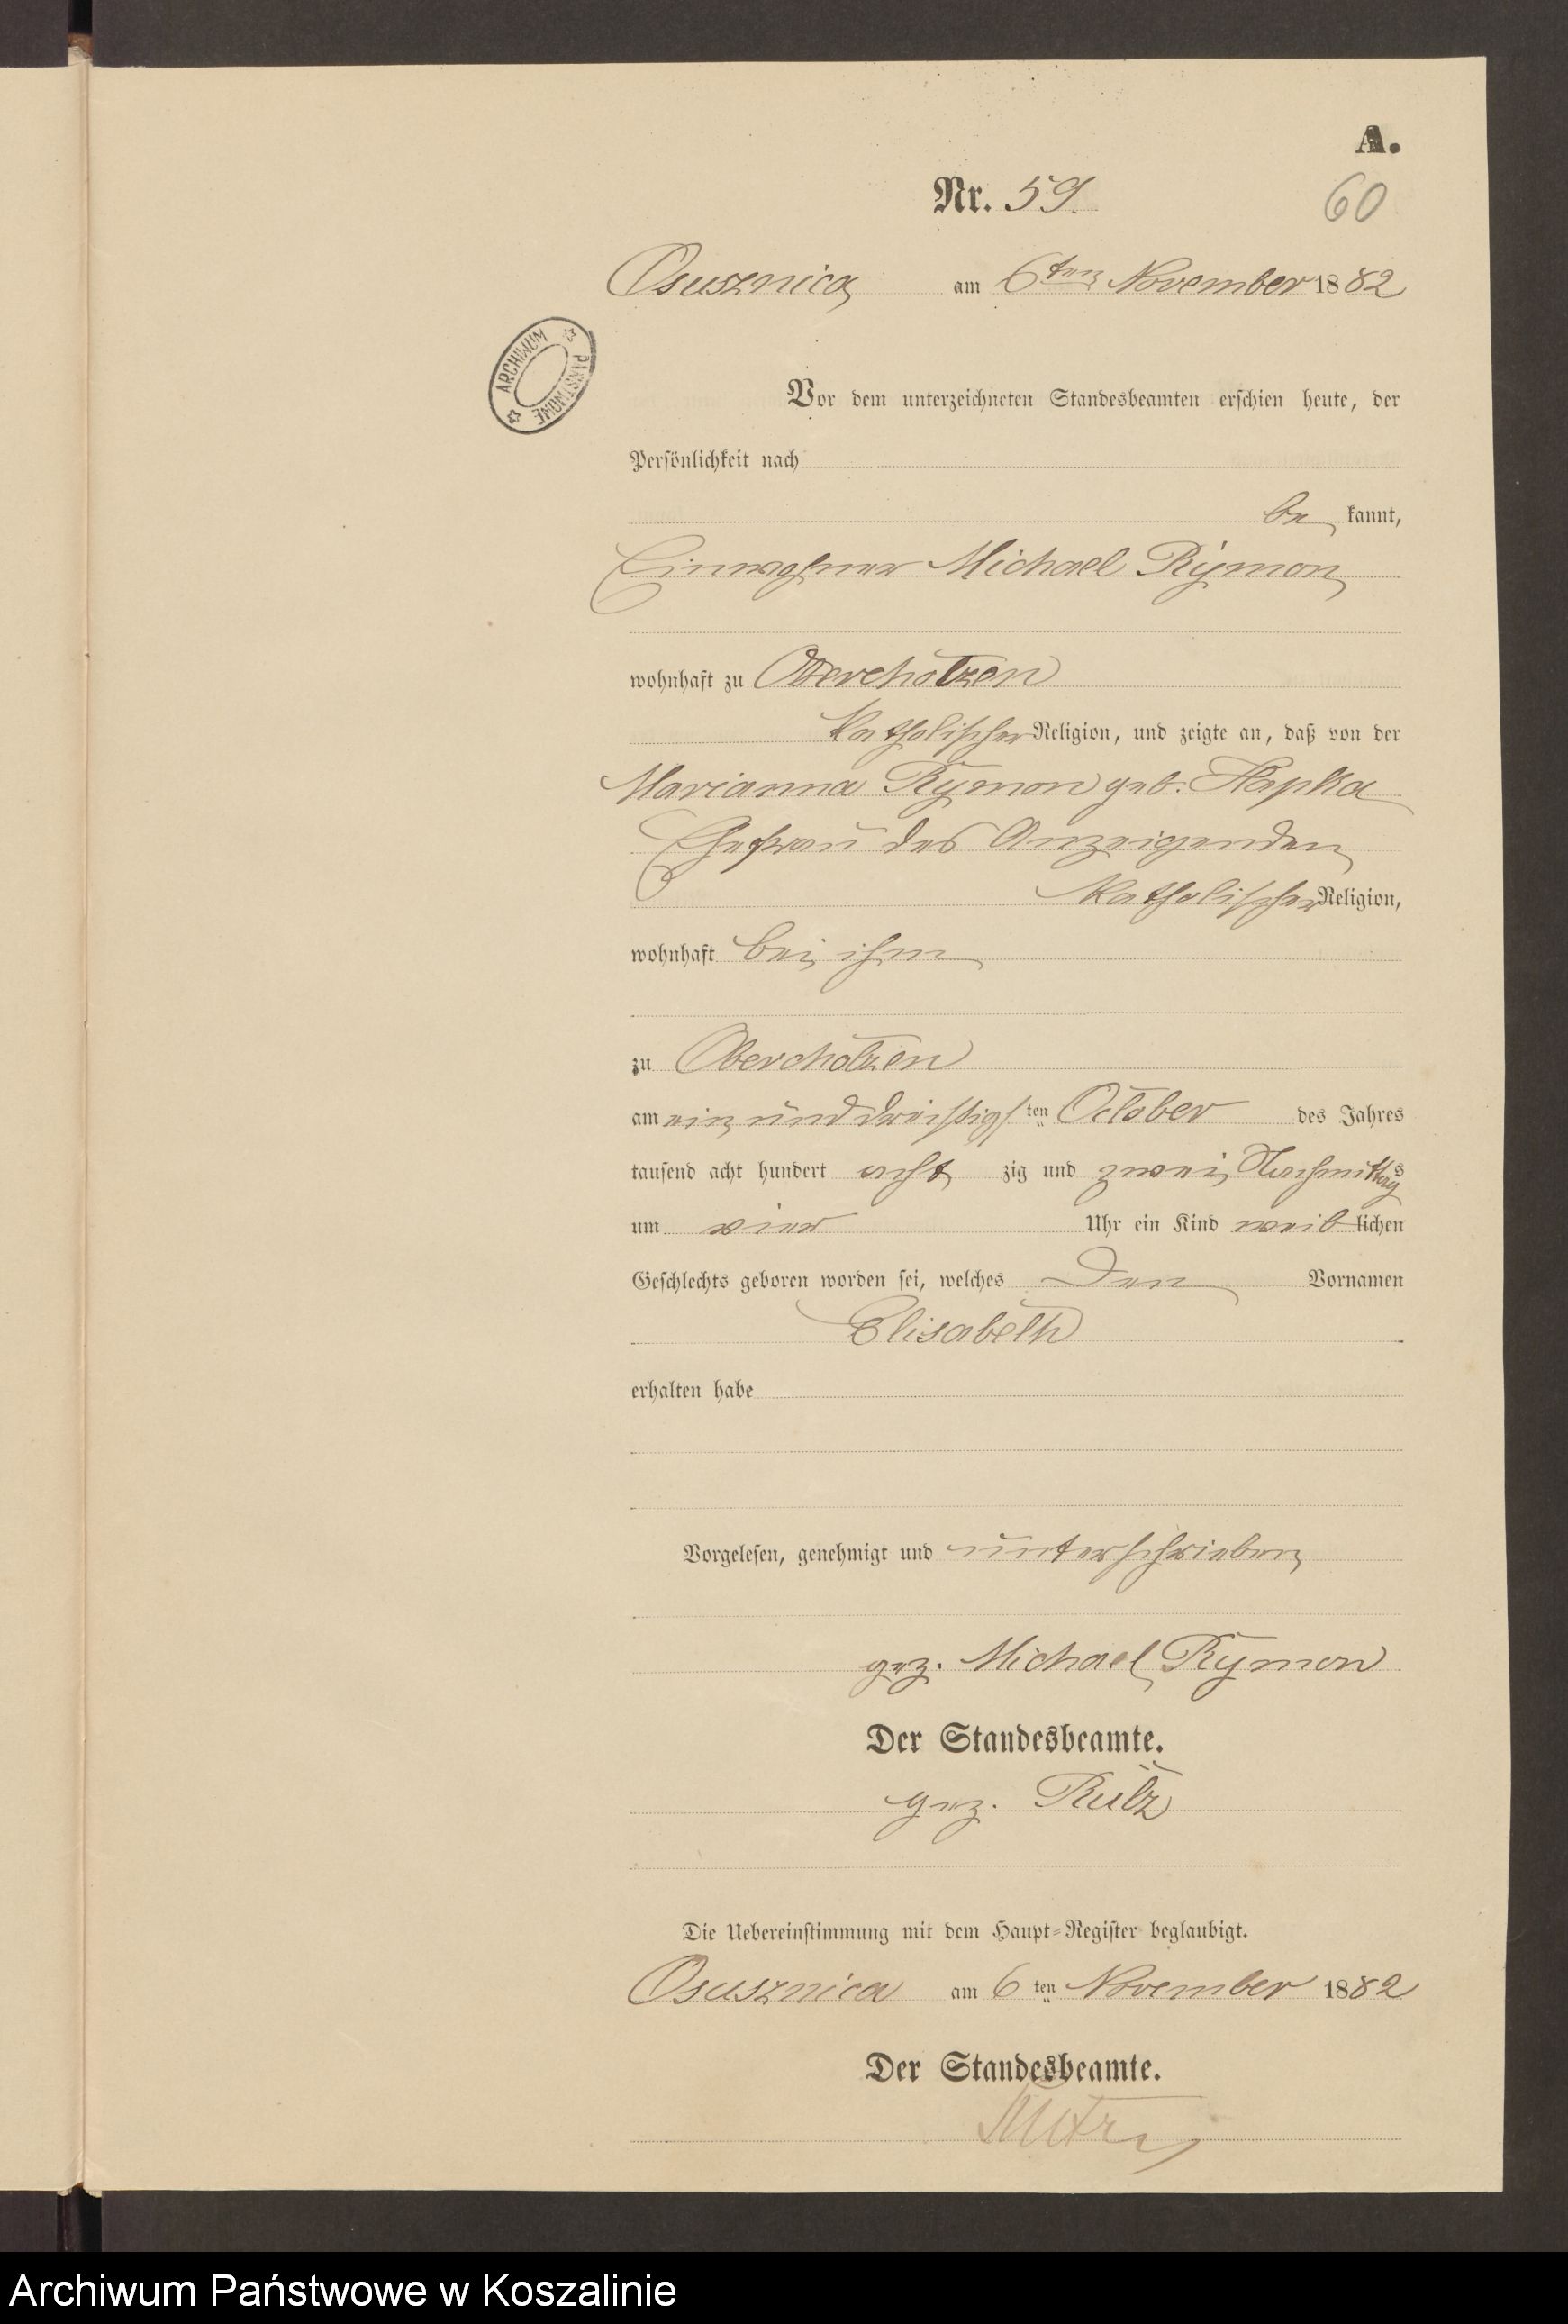 A.
Nr. 59.
60
Osusznica am 6ten November 1882
ARCHIWUM PAŃSTWOWE
Vor dem unterzeichneten Standesbeamten erschien heute, der
Persönlichkeit nach
be kannt,
Einwohner Michael Rymon
wohnhaft zu Oberchotzen
katholischer Religion, und zeigte an, daß von der
Marianna Rymon geb.
Ehefrau des Anzeigenden
katholischer Religion,
wohnhaft bei ihm
zu Oberchotzen
am ein und dreißigsten October des Jahres
tausend acht hundert acht zig und zwei Nachmittags
um vier Uhr ein Kind weib lichen
Geschlechts geboren worden sei, welches den Vornamen
Elisabeth
erhalten habe
Vorgelesen, genehmigt und unterschrieben
gez. Michael Rymon
Der Standesbeamte.
gez.
Die Uebereinstimmung mit dem Haupt-Register beglaubigt.
Osusznica am 6 ten November 1882
Der Standesbeamte.
Archiwum Państwowe w Koszalinie